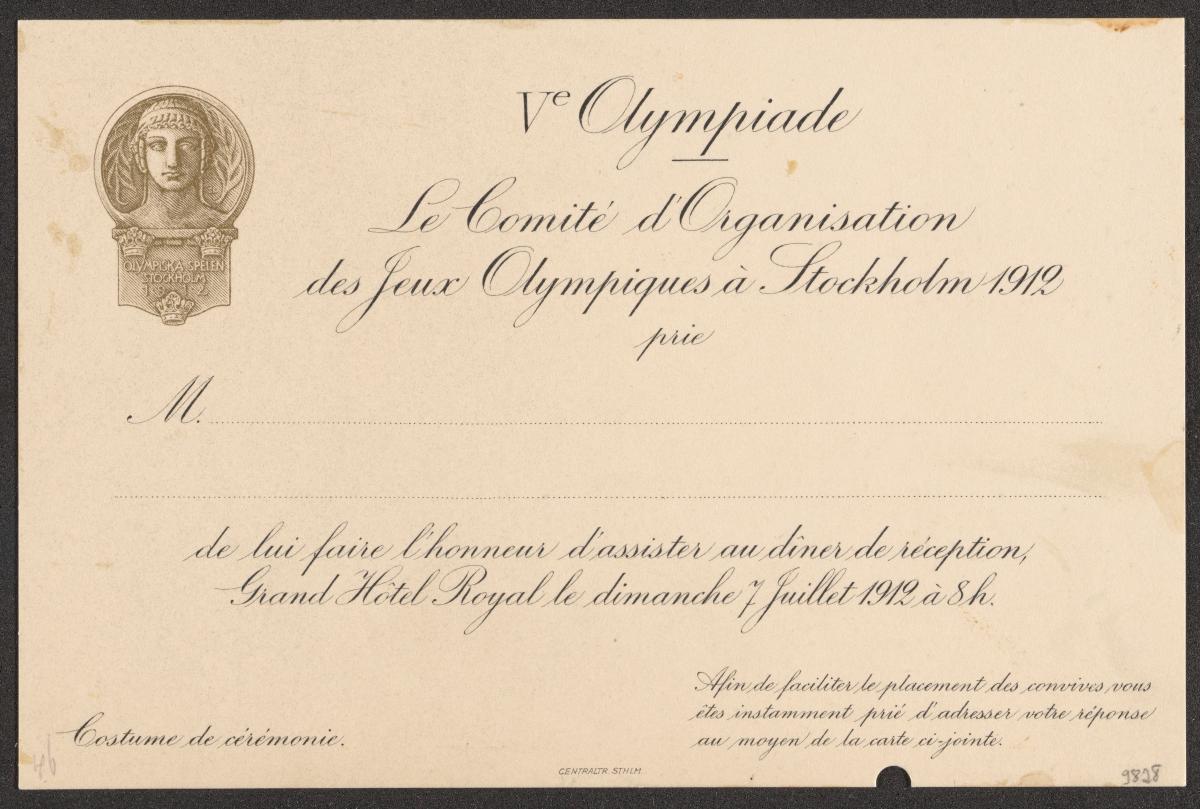 Ve Olympiade
Le Comité d'Organisation
des Jeux Olympiques à Stockholm 1912
prie
OLYMPISKA SPELEN
STOCKHOLM
1912
M.
de lui faire l'honneur d'assister au dîner de réception,
Grand Hôtel Royal le dimanche 7 Juillet 1912 à 8 h.
Afin de faciliter le placement des convives vous
êtes instamment prié d'adresser votre réponse
au moyen de la carte ci-jointe.
Costume de cérémonie.
46
CENTRALTR. STHLM.
9828